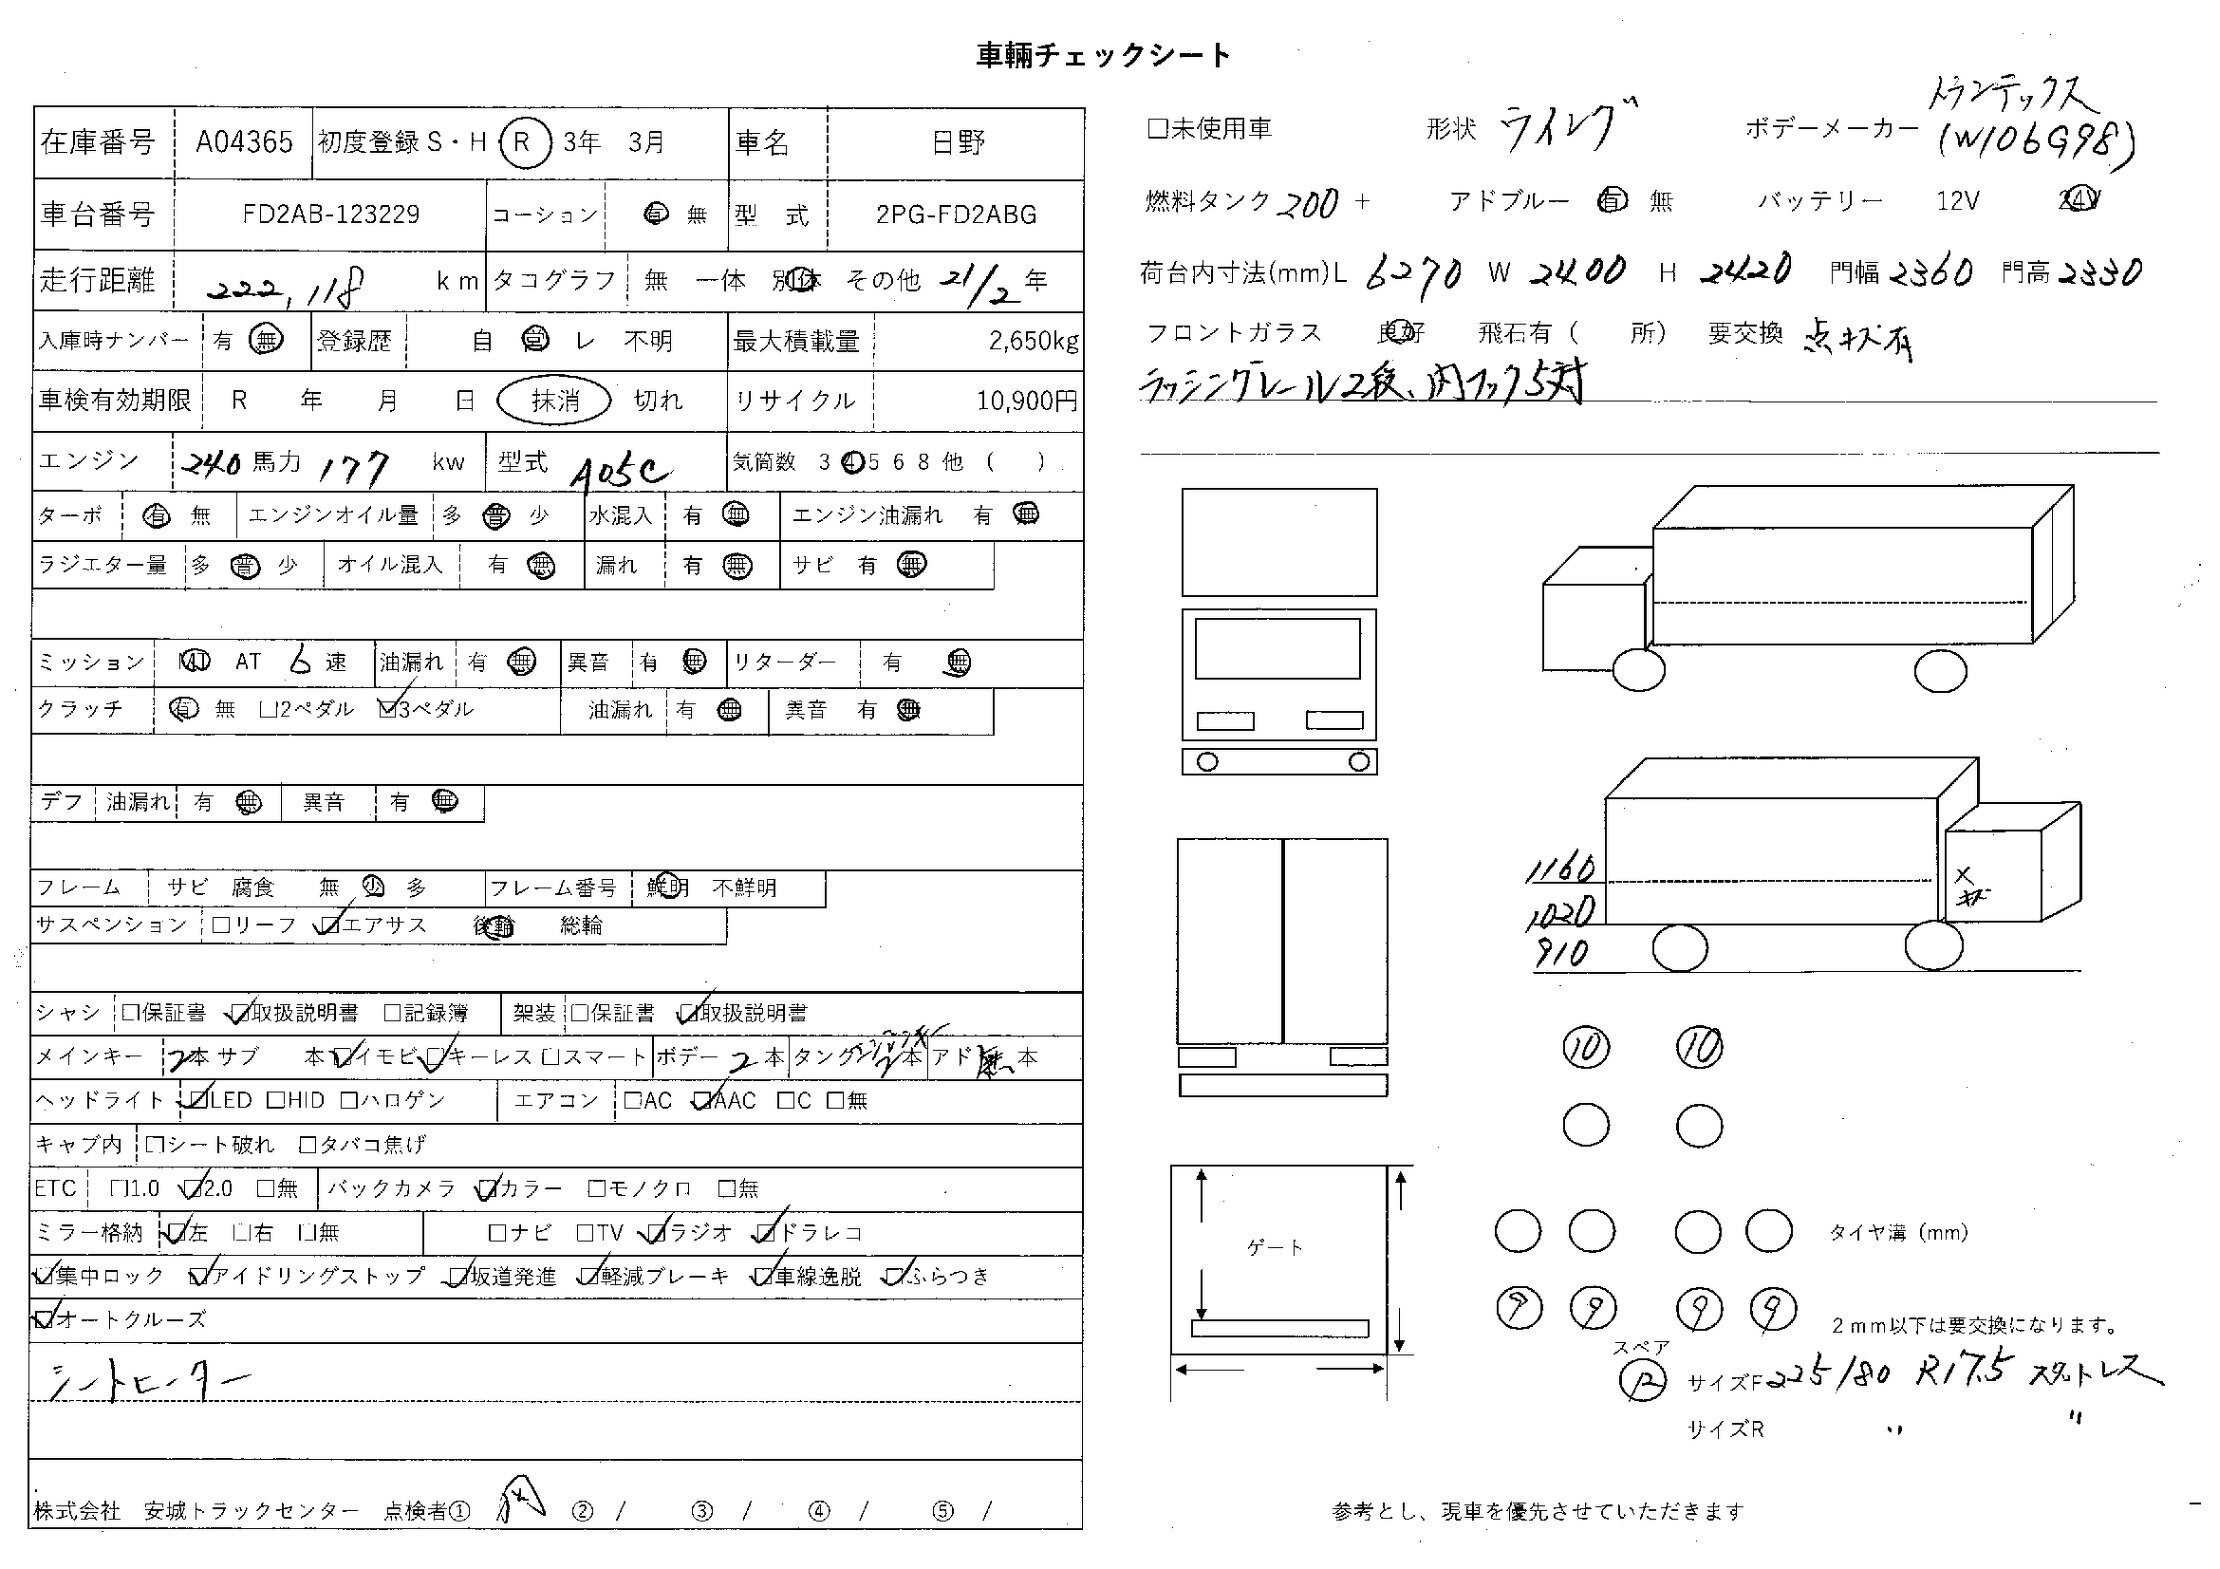 車輛チェックシート
在庫番号 A04365 初度登録 S・H・R 3年 3月 車名 日野
車台番号 FD2AB-123229 コーション 有 無 型 式 2PG-FD2ABG
走行距離 222,118 km タコグラフ 無 一体 別体 その他 21/2 年
入庫時ナンバー 有 無 登録歴 自 営 レ 不明 最大積載量 2,650kg
車検有効期限 R 年 月 日 抹消 切れ リサイクル 10,900円
エンジン 240 馬力 177 kw 型式 A05C 気筒数 3 4 5 6 8 他 ( )
ターボ 有 無 エンジンオイル量 多 普 少 水混入 有 無 エンジン油漏れ 有 無
ラジエター量 多 普 少 オイル混入 有 無 漏れ 有 無 サビ 有 無
ミッション MT AT 6 速 油漏れ 有 無 異音 有 無 リターダー 有 無
クラッチ 有 無 □2ペダル ☑3ペダル 油漏れ 有 無 異音 有 無
デフ 油漏れ 有 無 異音 有 無
フレーム サビ 腐食 無 少 多 フレーム番号 鮮明 不鮮明
サスペンション □リーフ ☑エアサス 後輪 総輪
シャシ □保証書 ☑取扱説明書 □記録簿 架装 □保証書 ☑取扱説明書
メインキー 2本 サブ 本 ☑イモビ ☑キーレス □スマート ボデー 2 本 タンク 2本 アド 無 本
ヘッドライト ☑LED □HID □ハロゲン エアコン □AC ☑AAC □C □無
キャブ内 □シート破れ □タバコ焦げ
ETC □1.0 ☑2.0 □無 バックカメラ ☑カラー □モノクロ □無
ミラー格納 ☑左 □右 □無 □ナビ □TV ☑ラジオ ☑ドラレコ
☑集中ロック ☑アイドリングストップ ☑坂道発進 ☑軽減ブレーキ ☑車線逸脱 ☑ふらつき
☑オートクルーズ
シートヒーター
株式会社 安城トラックセンター 点検者① ② / ③ / ④ / ⑤ /
トランテックス
□未使用車 形状 ウイング ボデーメーカー (W106G98)
燃料タンク 200 + アドブルー 有 無 バッテリー 12V 24V
荷台内寸法(mm) L 6270 W 2400 H 2420 門幅 2360 門高 2330
フロントガラス 良好 飛石有 ( 所) 要交換 点キズ有
ラッシングレール2段、内フック5対
1160
1020
910
× キズ
10 10
ゲート
タイヤ溝 (mm)
9 9 9 9
2mm以下は要交換になります。
スペア
12 サイズF 225/80 R17.5 スタットレス
サイズR 〃 〃
参考とし、現車を優先させていただきます